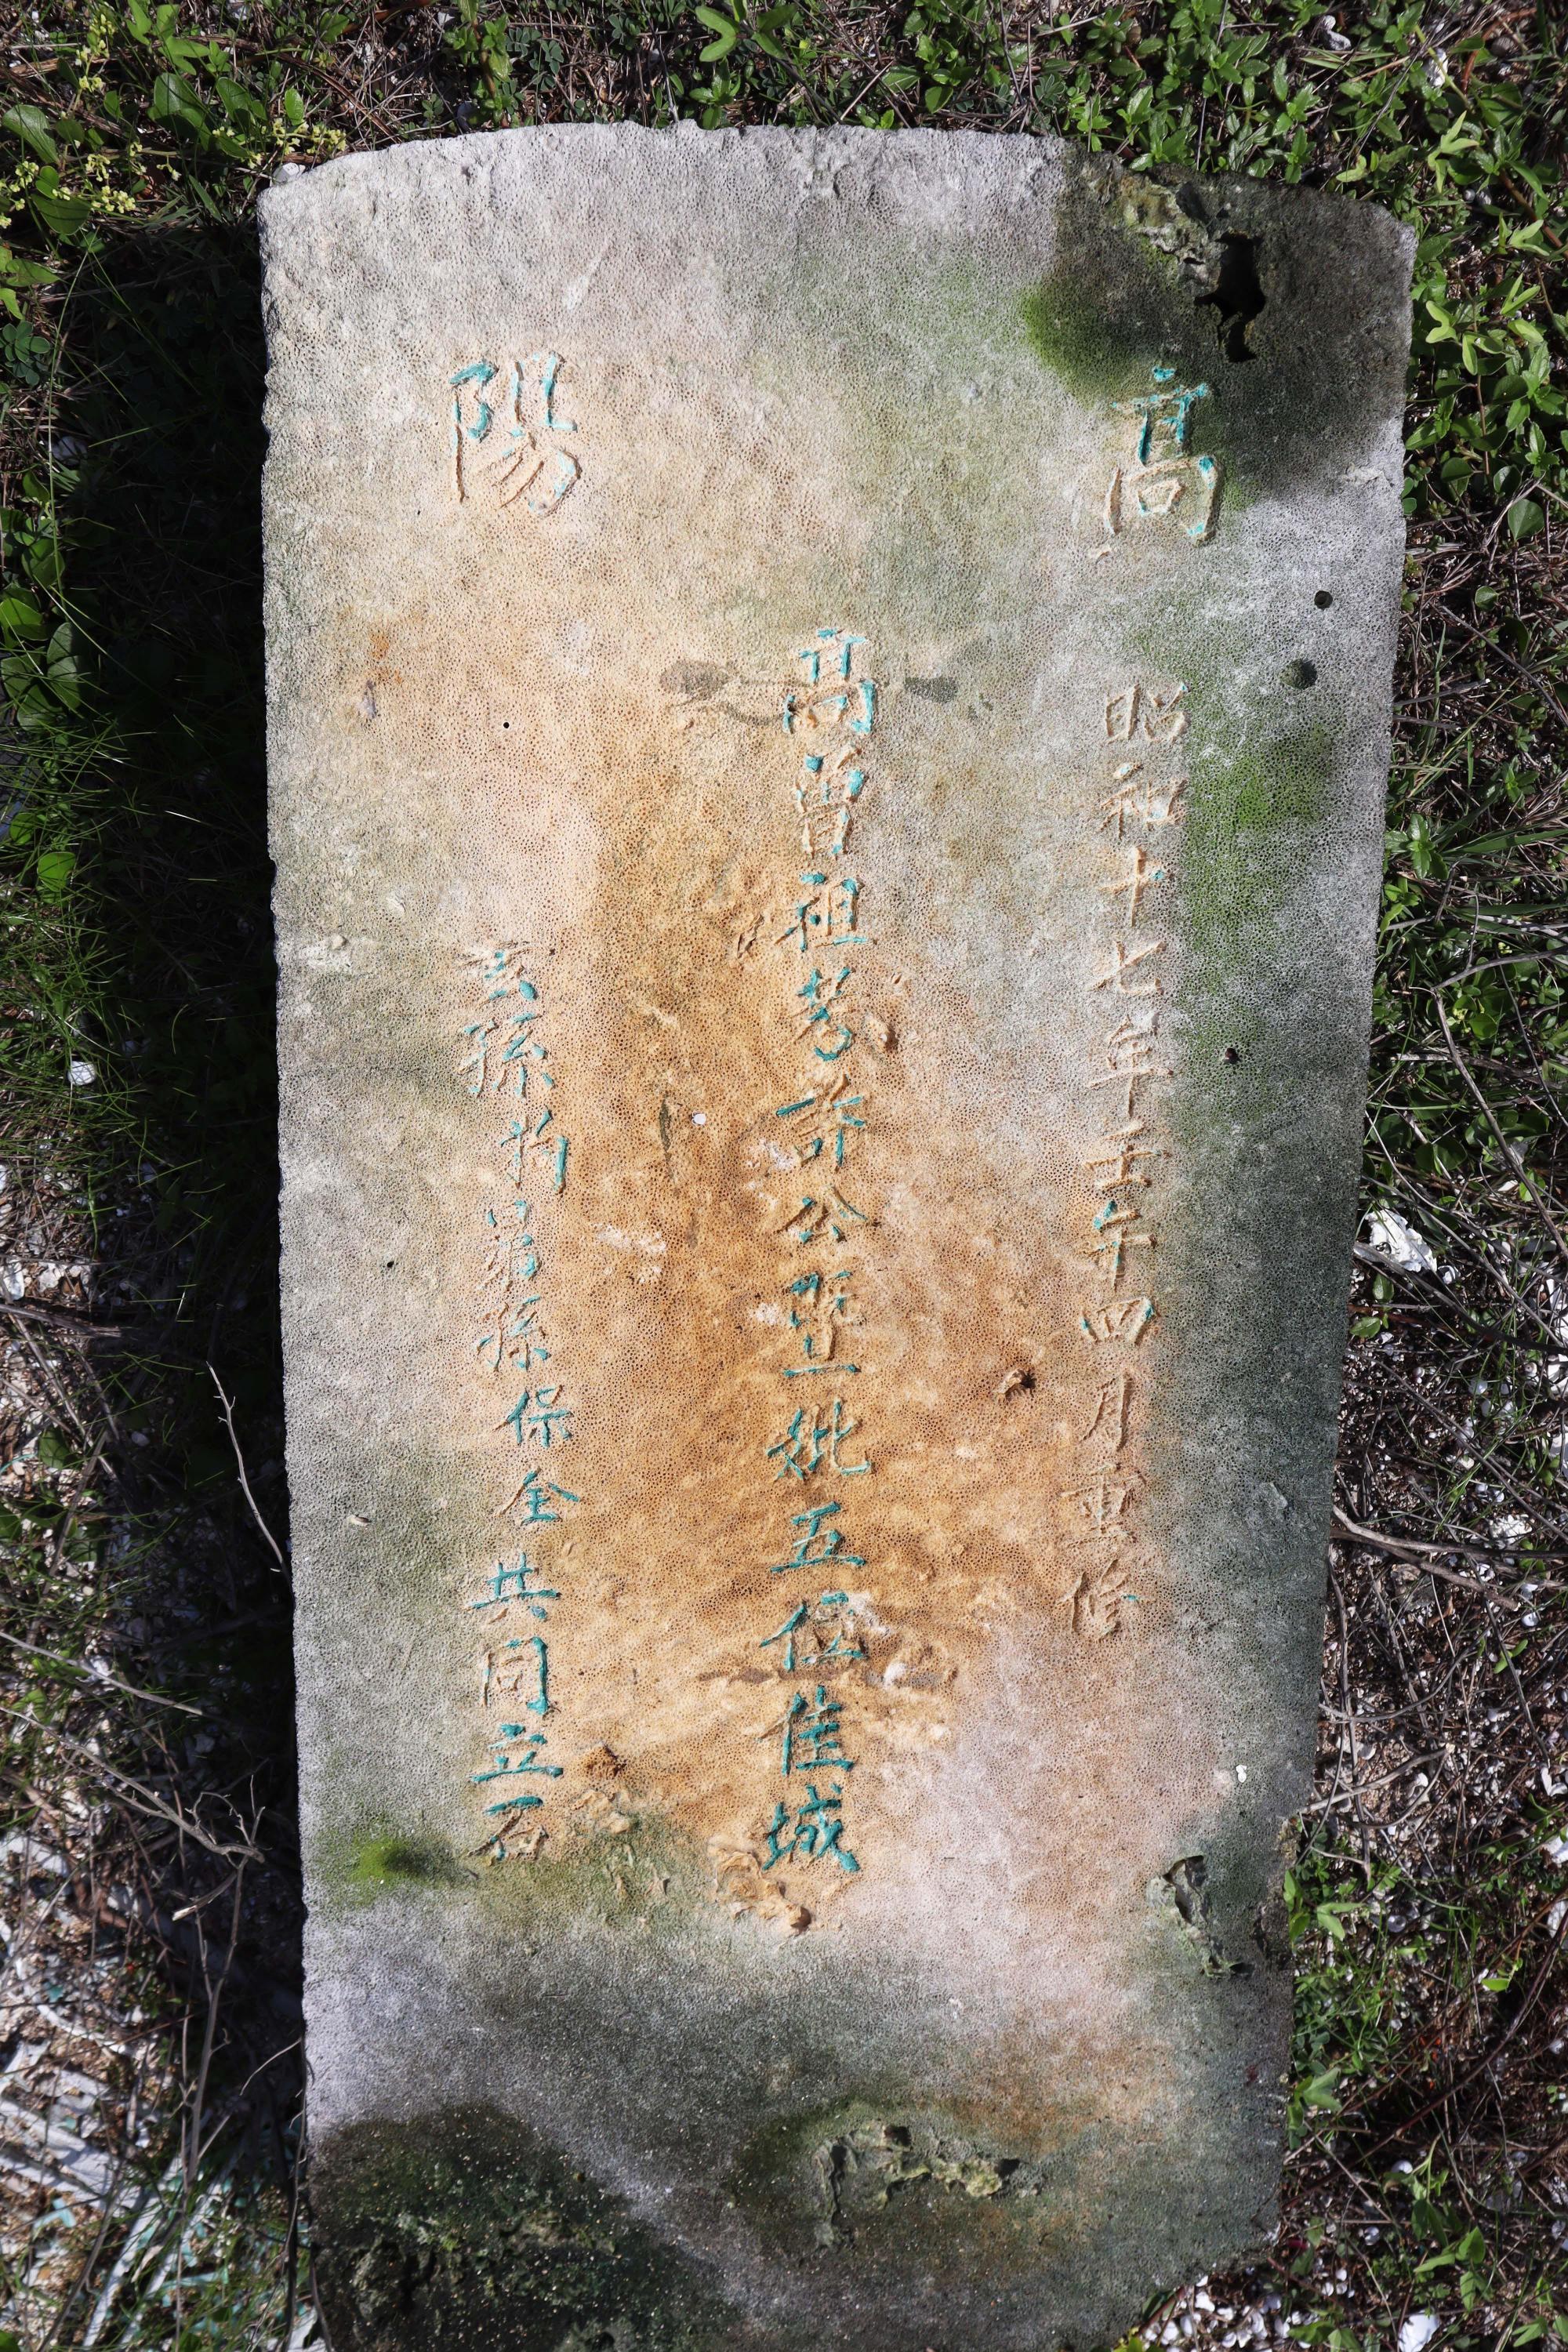 高陽
昭和十七年壬午四月重修
高曾祖考許公暨妣五位佳城
玄孫均晜孫保全共同立石